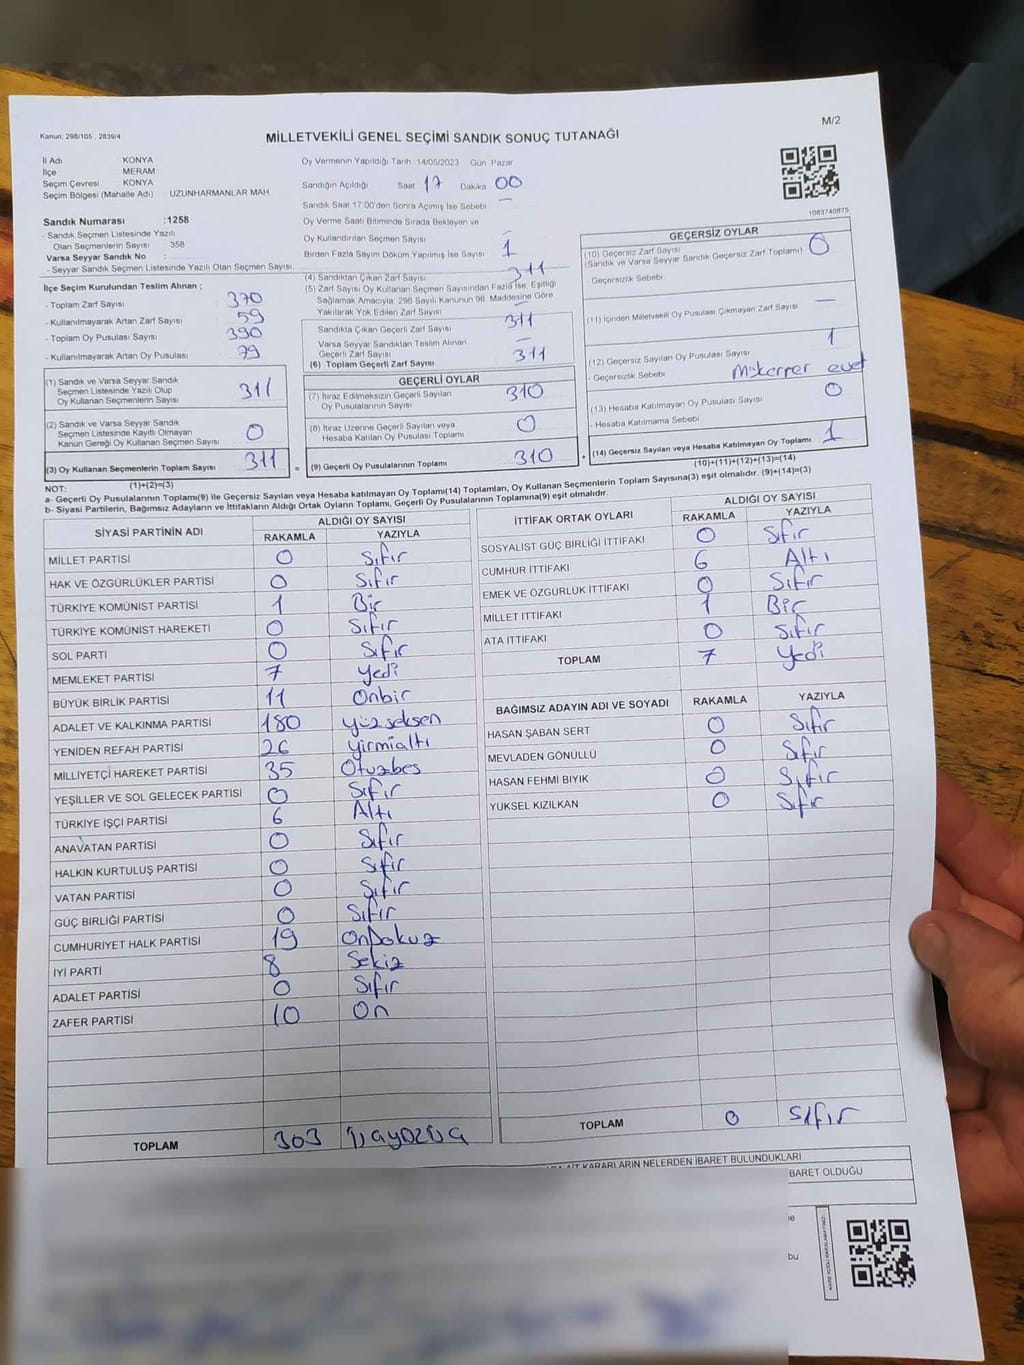 Kanun: 298/105 , 2839/4
M/2
MİLLETVEKİLİ GENEL SEÇİMİ SANDIK SONUÇ TUTANAĞI
İl Adı KONYA
İlçe MERAM
Seçim Çevresi KONYA
Seçim Bölgesi (Mahalle Adı) UZUNHARMANLAR MAH.
Sandık Numarası :1258
- Sandık Seçmen Listesinde Yazılı
Olan Seçmenlerin Sayısı : 358
Varsa Seyyar Sandık No :
- Seyyar Sandık Seçmen Listesinde Yazılı Olan Seçmen Sayısı
İlçe Seçim Kurulundan Teslim Alınan ;
- Toplam Zarf Sayısı : 370
- Kullanılmayarak Artan Zarf Sayısı : 59
- Toplam Oy Pusulası Sayısı : 390
- Kullanılmayarak Artan Oy Pusulası : 79
(1) Sandık ve Varsa Seyyar Sandık
Seçmen Listesinde Yazılı Olup
Oy Kullanan Seçmenlerin Sayısı 311
(2) Sandık ve Varsa Seyyar Sandık
Seçmen Listesinde Kayıtlı Olmayan
Kanun Gereği Oy Kullanan Seçmen Sayısı 0
(3) Oy Kullanan Seçmenlerin Toplam Sayısı 311 =
(1)+(2)=(3)
Oy Vermenin Yapıldığı Tarih : 14/05/2023 Gün Pazar
Sandığın Açıldığı Saat 17 Dakika 00
Sandık Saat 17:00'den Sonra Açımış İse Sebebi —
Oy Verme Saati Bitiminde Sırada Bekleyen ve
Oy Kullandırılan Seçmen Sayısı —
Birden Fazla Sayım Döküm Yapılmış İse Sayısı 1
(4) Sandıktan Çıkan Zarf Sayısı 311
(5) Zarf Sayısı Oy Kullanan Seçmen Sayısından Fazla İse, Eşitliği
Sağlamak Amacıyla, 298 Sayılı Kanunun 98. Maddesine Göre
Yakılarak Yok Edilen Zarf Sayısı —
Sandıkta Çıkan Geçerli Zarf Sayısı 311
Varsa Seyyar Sandıktan Teslim Alınan
Geçerli Zarf Sayısı —
(6) Toplam Geçerli Zarf Sayısı 311
GEÇERLİ OYLAR
(7) İtiraz Edilmeksizin Geçerli Sayılan
Oy Pusulasının Sayısı 310
(8) İtiraz Üzerine Geçerli Sayılan veya
Hesaba Katılan Oy Pusulası Toplamı 0
(9) Geçerli Oy Pusulalarının Toplamı 310 +
1083740875
GEÇERSİZ OYLAR
(10) Geçersiz Zarf Sayısı 0
(Sandık ve Varsa Seyyar Sandık Geçersiz Zarf Toplamı)
Geçersizlik Sebebi
(11) İçinden Milletvekili Oy Pusulası Çıkmayan Zarf Sayısı —
(12) Geçersiz Sayılan Oy Pusulası Sayısı 1
- Geçersizlik Sebebi evet
(13) Hesaba Katılmayan Oy Pusulası Sayısı 0
- Hesaba Katılmama Sebebi
(14) Geçersiz Sayılan veya Hesaba Katılmayan Oy Toplamı 1
(10)+(11)+(12)+(13)=(14)
NOT:
a- Geçerli Oy Pusulalarının Toplamı(9) ile Geçersiz Sayılan veya Hesaba katılmayan Oy Toplamı(14) Toplamları, Oy Kullanan Seçmenlerin Toplam Sayısına(3) eşit olmalıdır. (9)+(14)=(3)
b- Siyasi Partilerin, Bağımsız Adayların ve İttifakların Aldığı Ortak Oyların Toplamı, Geçerli Oy Pusulalarının Toplamına(9) eşit olmalıdır.
SİYASİ PARTİNİN ADI ALDIĞI OY SAYISI
RAKAMLA YAZIYLA
MİLLET PARTİSİ 0 Sıfır
HAK VE ÖZGÜRLÜKLER PARTİSİ 0 Sıfır
TÜRKİYE KOMÜNİST PARTİSİ 1 Bir
TÜRKİYE KOMÜNİST HAREKETİ 0 Sıfır
SOL PARTİ 0 Sıfır
MEMLEKET PARTİSİ 7 Yedi
BÜYÜK BİRLİK PARTİSİ 11 Onbir
ADALET VE KALKINMA PARTİSİ 180 yüzseksen
YENİDEN REFAH PARTİSİ 26 yirmialtı
MİLLİYETÇİ HAREKET PARTİSİ 35 Otuzbes
YEŞİLLER VE SOL GELECEK PARTİSİ 0 Sıfır
TÜRKİYE İŞÇİ PARTİSİ 6 Altı
ANAVATAN PARTİSİ 0 Sıfır
HALKIN KURTULUŞ PARTİSİ 0 Sıfır
VATAN PARTİSİ 0 Sıfır
GÜÇ BİRLİĞİ PARTİSİ 0 Sıfır
CUMHURİYET HALK PARTİSİ 19 OnDokuz
İYİ PARTİ 8 Sekiz
ADALET PARTİSİ 0 Sıfır
ZAFER PARTİSİ 10 On
TOPLAM 303
İTTİFAK ORTAK OYLARI ALDIĞI OY SAYISI
RAKAMLA YAZIYLA
SOSYALİST GÜÇ BİRLİĞİ İTTİFAKI 0 Sıfır
CUMHUR İTTİFAKI 6 Altı
EMEK VE ÖZGÜRLÜK İTTİFAKI 0 Sıfır
MİLLET İTTİFAKI 1 Bir
ATA İTTİFAKI 0 Sıfır
TOPLAM 7 Yedi
BAĞIMSIZ ADAYIN ADI VE SOYADI RAKAMLA YAZIYLA
HASAN ŞABAN SERT 0 Sıfır
MEVLADEN GÖNÜLLÜ 0 Sıfır
HASAN FEHMİ BIYIK 0 Sıfır
YÜKSEL KIZILKAN 0 Sıfır
TOPLAM 0 Sıfır
KARARLARIN NELERDEN İBARET BULUNDUKLARI
BARET OLDUĞU